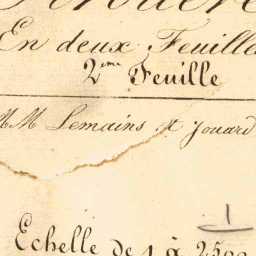 En deux Feuilles
2eme Feuille
MM Lemains & Jouard
1
Echelle de 1 à 2500